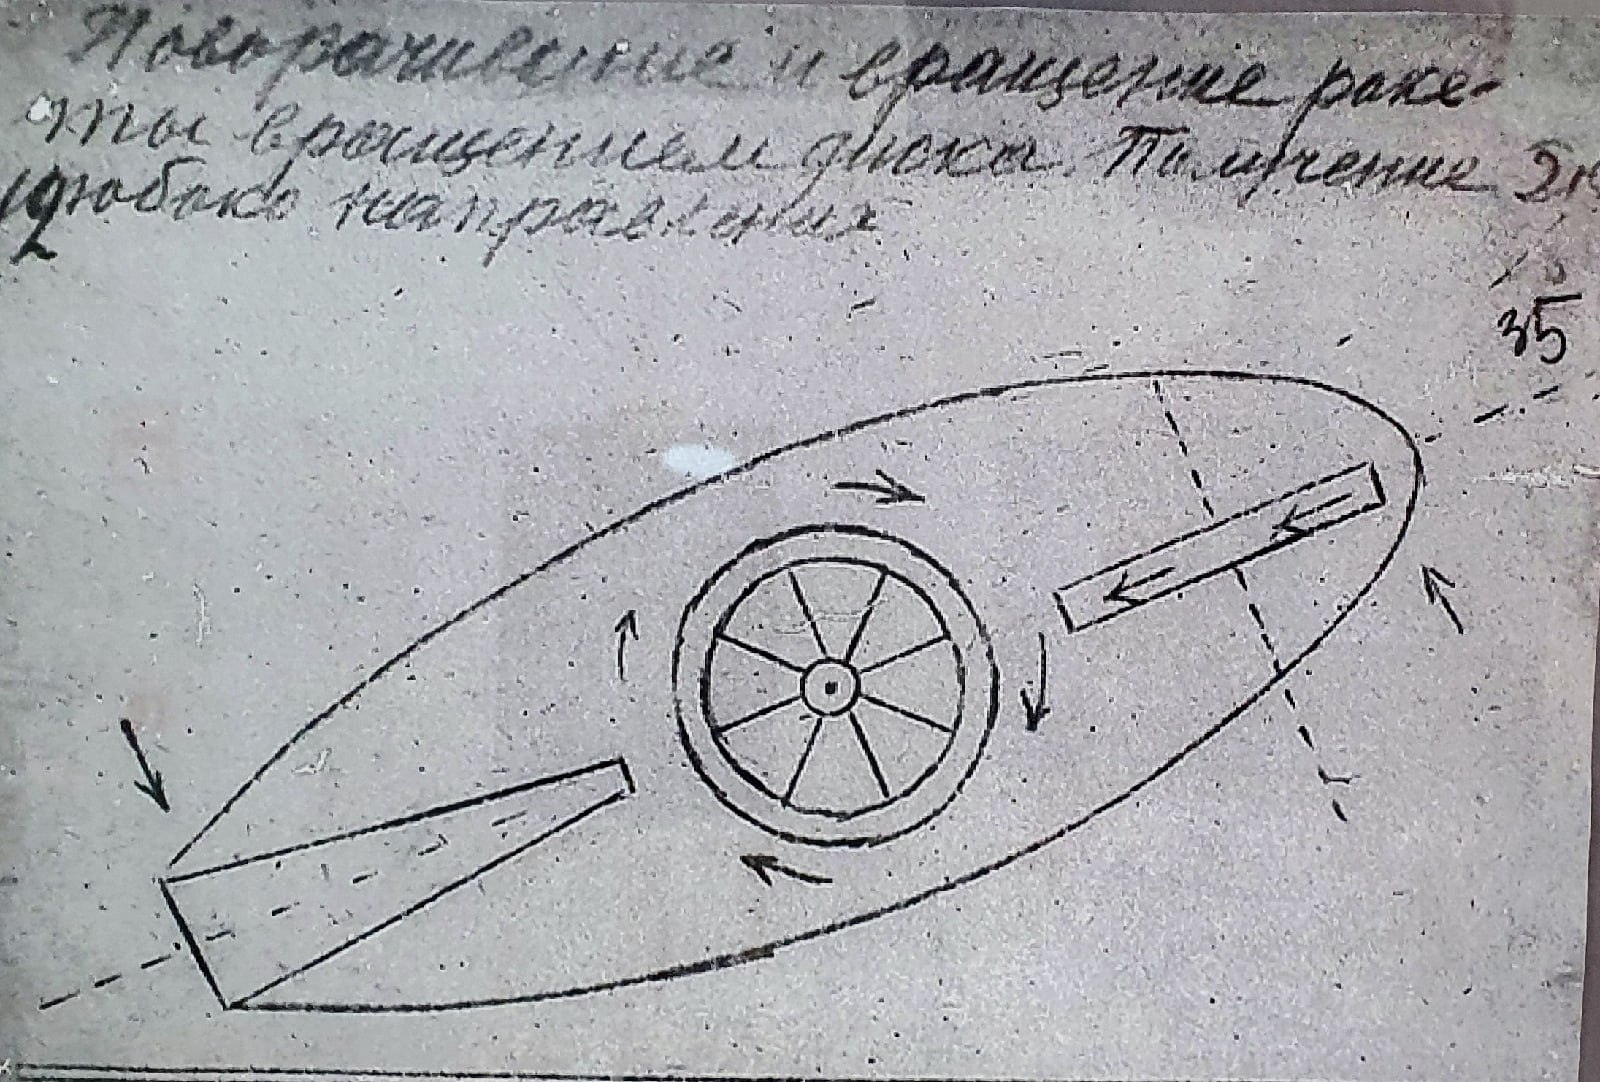 Поворачивание и вращение раке-
ты вращением диска. Получение
любого направления
35